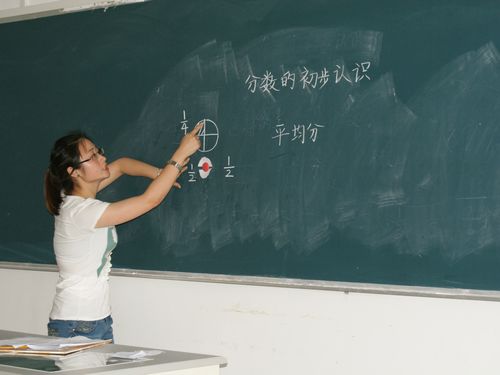 分数的初步认识
平均分
1/4
1/2
1/2